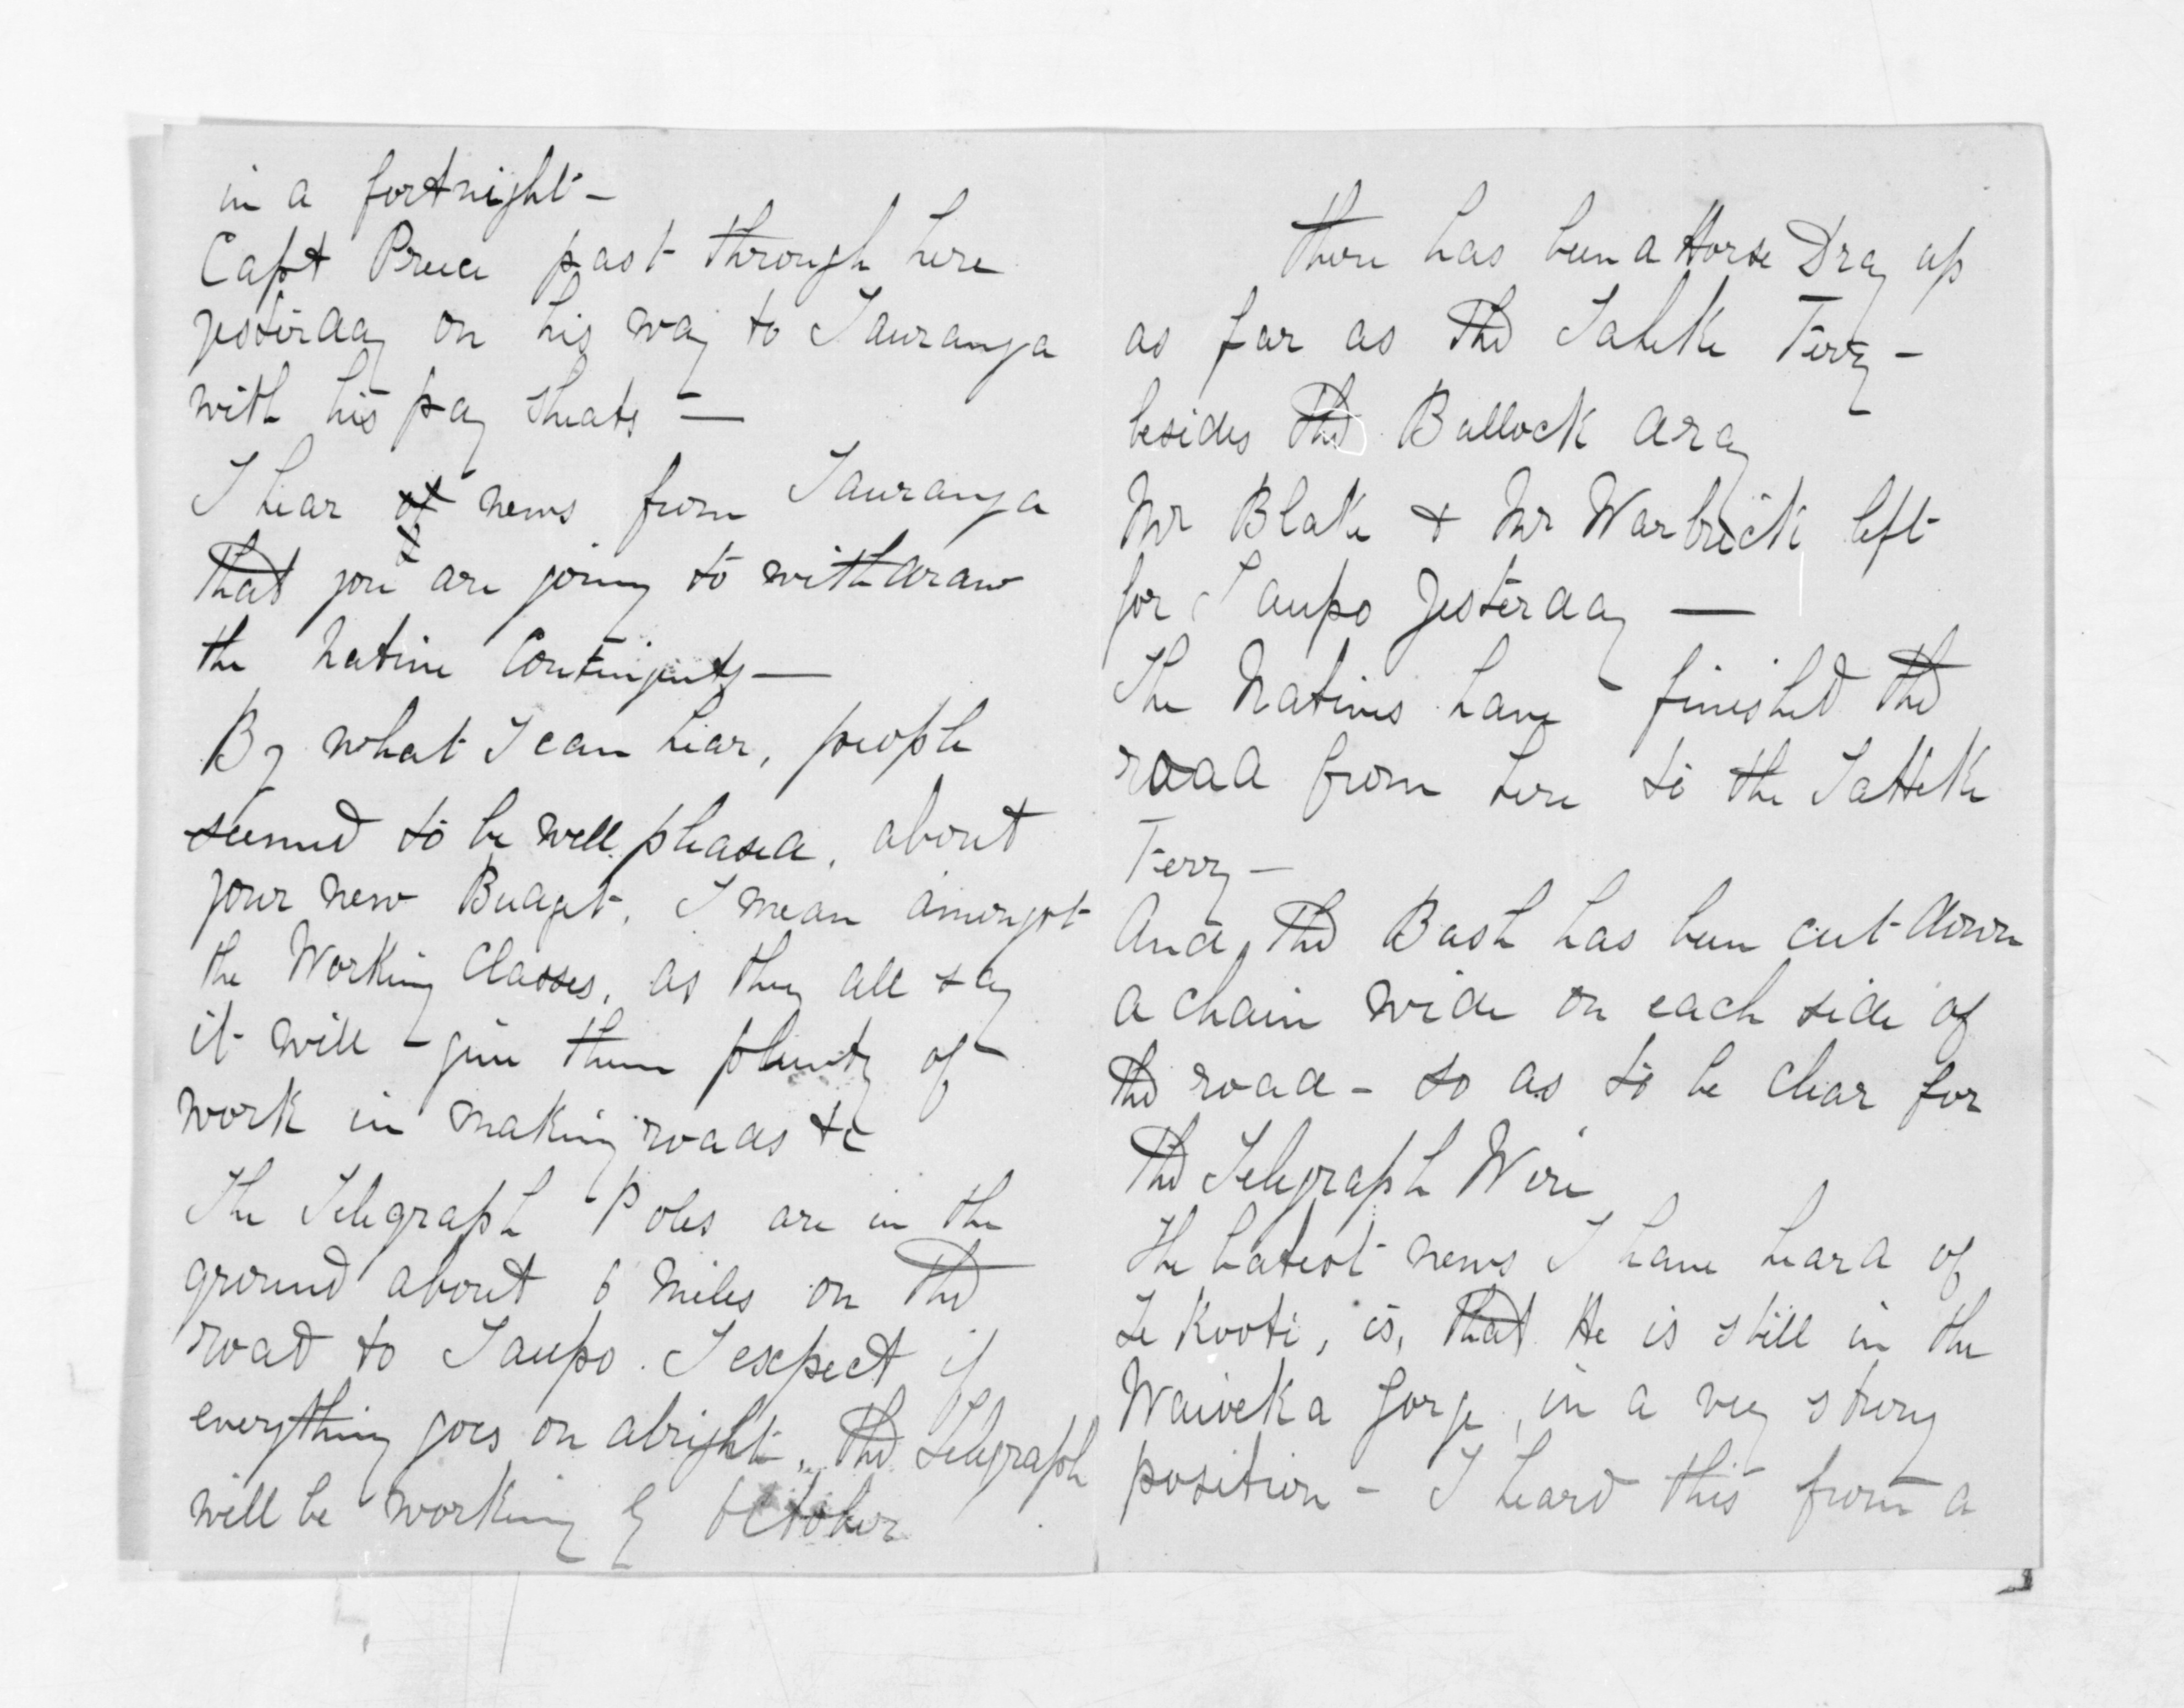 in a fortnight -
Capt Preece past through here
yesterday on his way to Tauranga
with his pay sheats —
I hear of news from Tauranga
that you are going to withdraw
the Native Contingents —
By what I can hear, people
seemed to be well pleased, about
your new Budget. I mean amongst
the Working Classes, as they all say
it will give them plenty of
work in making roads &c
The Telegraph Poles are in the
ground about 6 miles on the
road to Taupo. I expect if
everything goes on alright, the Telegraph
will be working by October
there has been a Horse Dray up
as far as the Taheke Ferry -
besides the Bullock dray
Mr Blake & Mr Warbrick left
for Taupo Yesterday —
The Natives have finished the
road from here to the Taheke
Ferry -
And the Bush has been cut down
a chain wide on each side of
the road - so as to be clear for
the Telegraph Wire
The Latest news I have heard of
Te Kooti, is, that He is still in the
Waioeka Gorge, in a very strong
position - I heard this from a